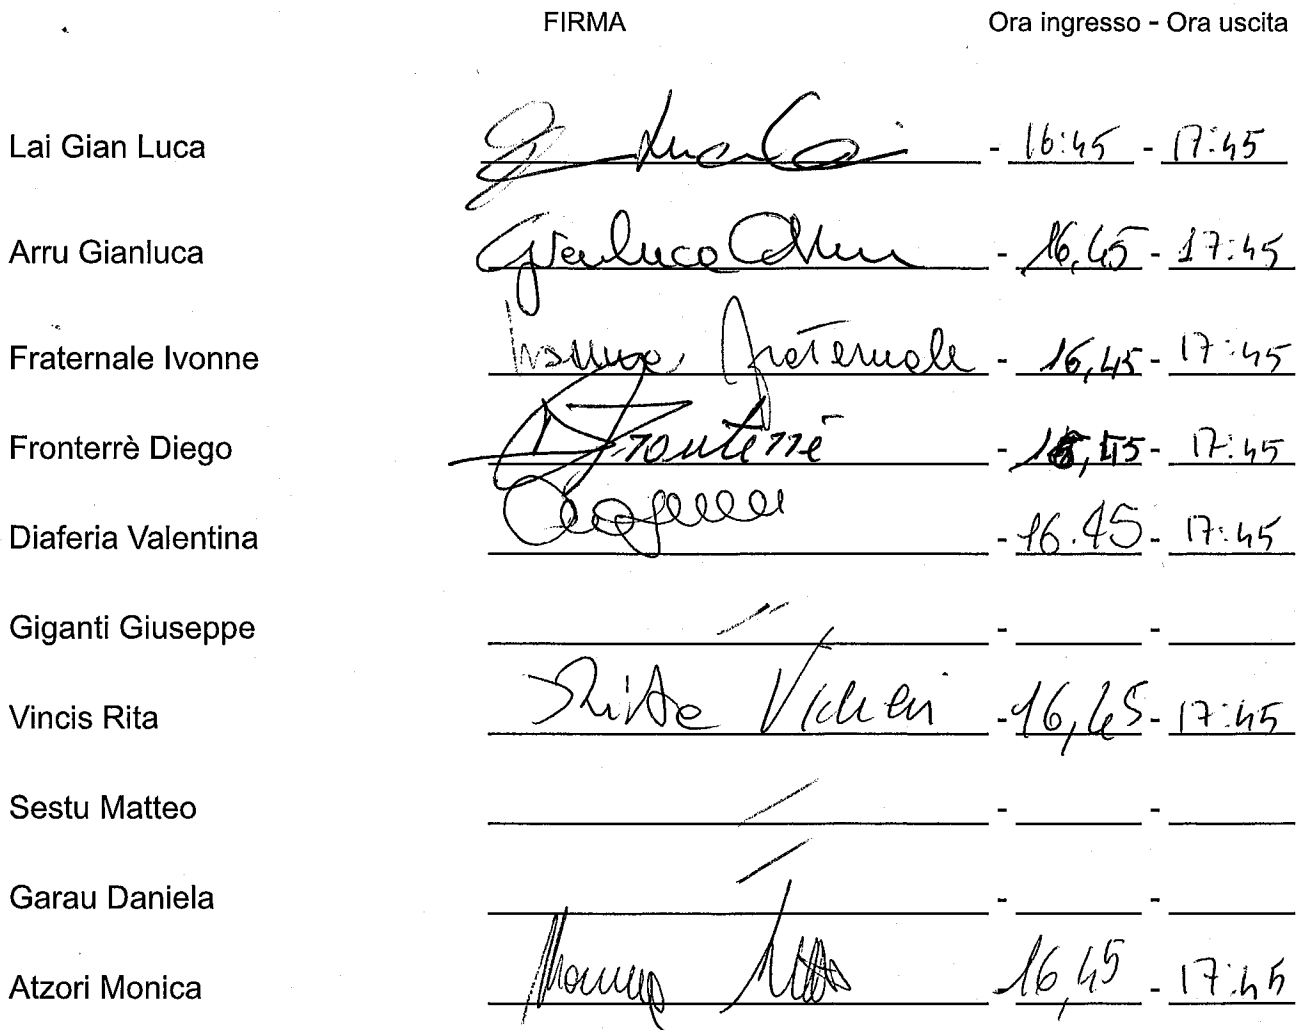 FIRMA Ora ingresso - Ora uscita
Lai Gian Luca - 16:45 - 17:45
Arru Gianluca Gianluca Arru - 16,45 - 17:45
Fraternale Ivonne Fraternale - 16,45 - 17:45
Fronterrè Diego Fronterrè - 16,45 - 17:45
Diaferia Valentina - 16.45 - 17:45
Giganti Giuseppe - -
Vincis Rita Rita Vincis - 16,45 - 17:45
Sestu Matteo - -
Garau Daniela - -
Atzori Monica - 16,45 - 17:45